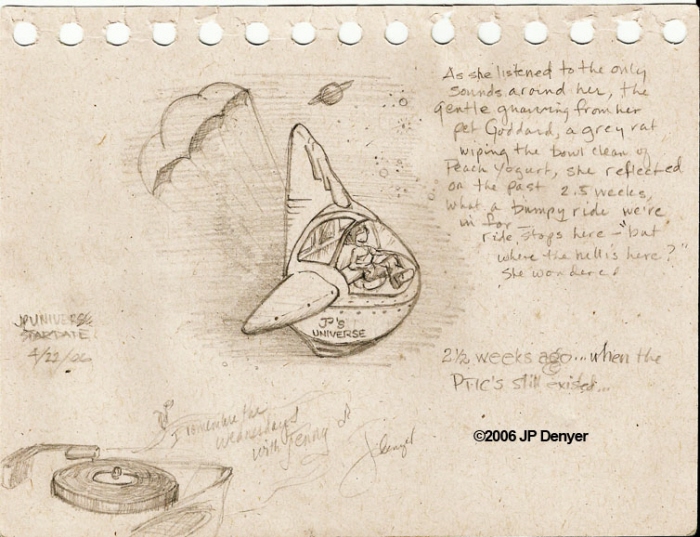 As she listened to the only
sounds around her, the
gentle gnawing from her
pet Goddard, a grey rat
wiping the bowl clean of
Peach Yogurt, she reflected
on the past 2.5 weeks,
what a bumpy ride we're
in for
ride, stops here - "but
where the hell is here?"
she wondered
JP'S
UNIVERSE
JPUNIVERSE
STARDATE:
4/22/06
2½ weeks ago...when the
PTIC's still existed...
I remember the
Wednesdays
with Jenny
©2006 JP Denyer